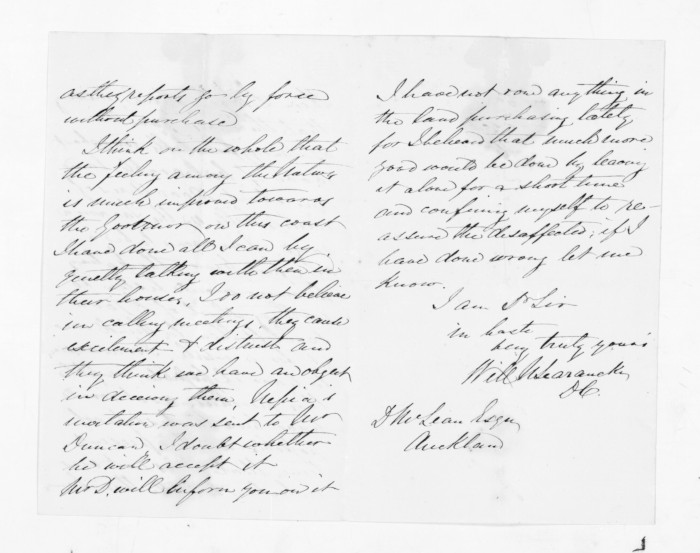 as the reports go by force
without purchase
I think on the whole that
the feeling among the Natives
is much improved towards
the Govornor on this coast
I have done all I can by
quietly talking with them in
their houses, I do not believe
in calling meetings, they cause
excitement & distrust and
they think we have an object
in deceiving them,
invitation was sent to Mr
Duncan, I doubt whether
he will accept it
Mr D. will inform you on it
I have not done anything in
the land purchasing lately
for I heard that much more
good would be done by leaving
it alone for a short time
and confining myself to re-
assure the desaffected; if I
have done wrong let me
know.
I am Dr Sir
in haste
very truly yours
Will N Searancke
D.C.
D McLean Esqr
Auckland